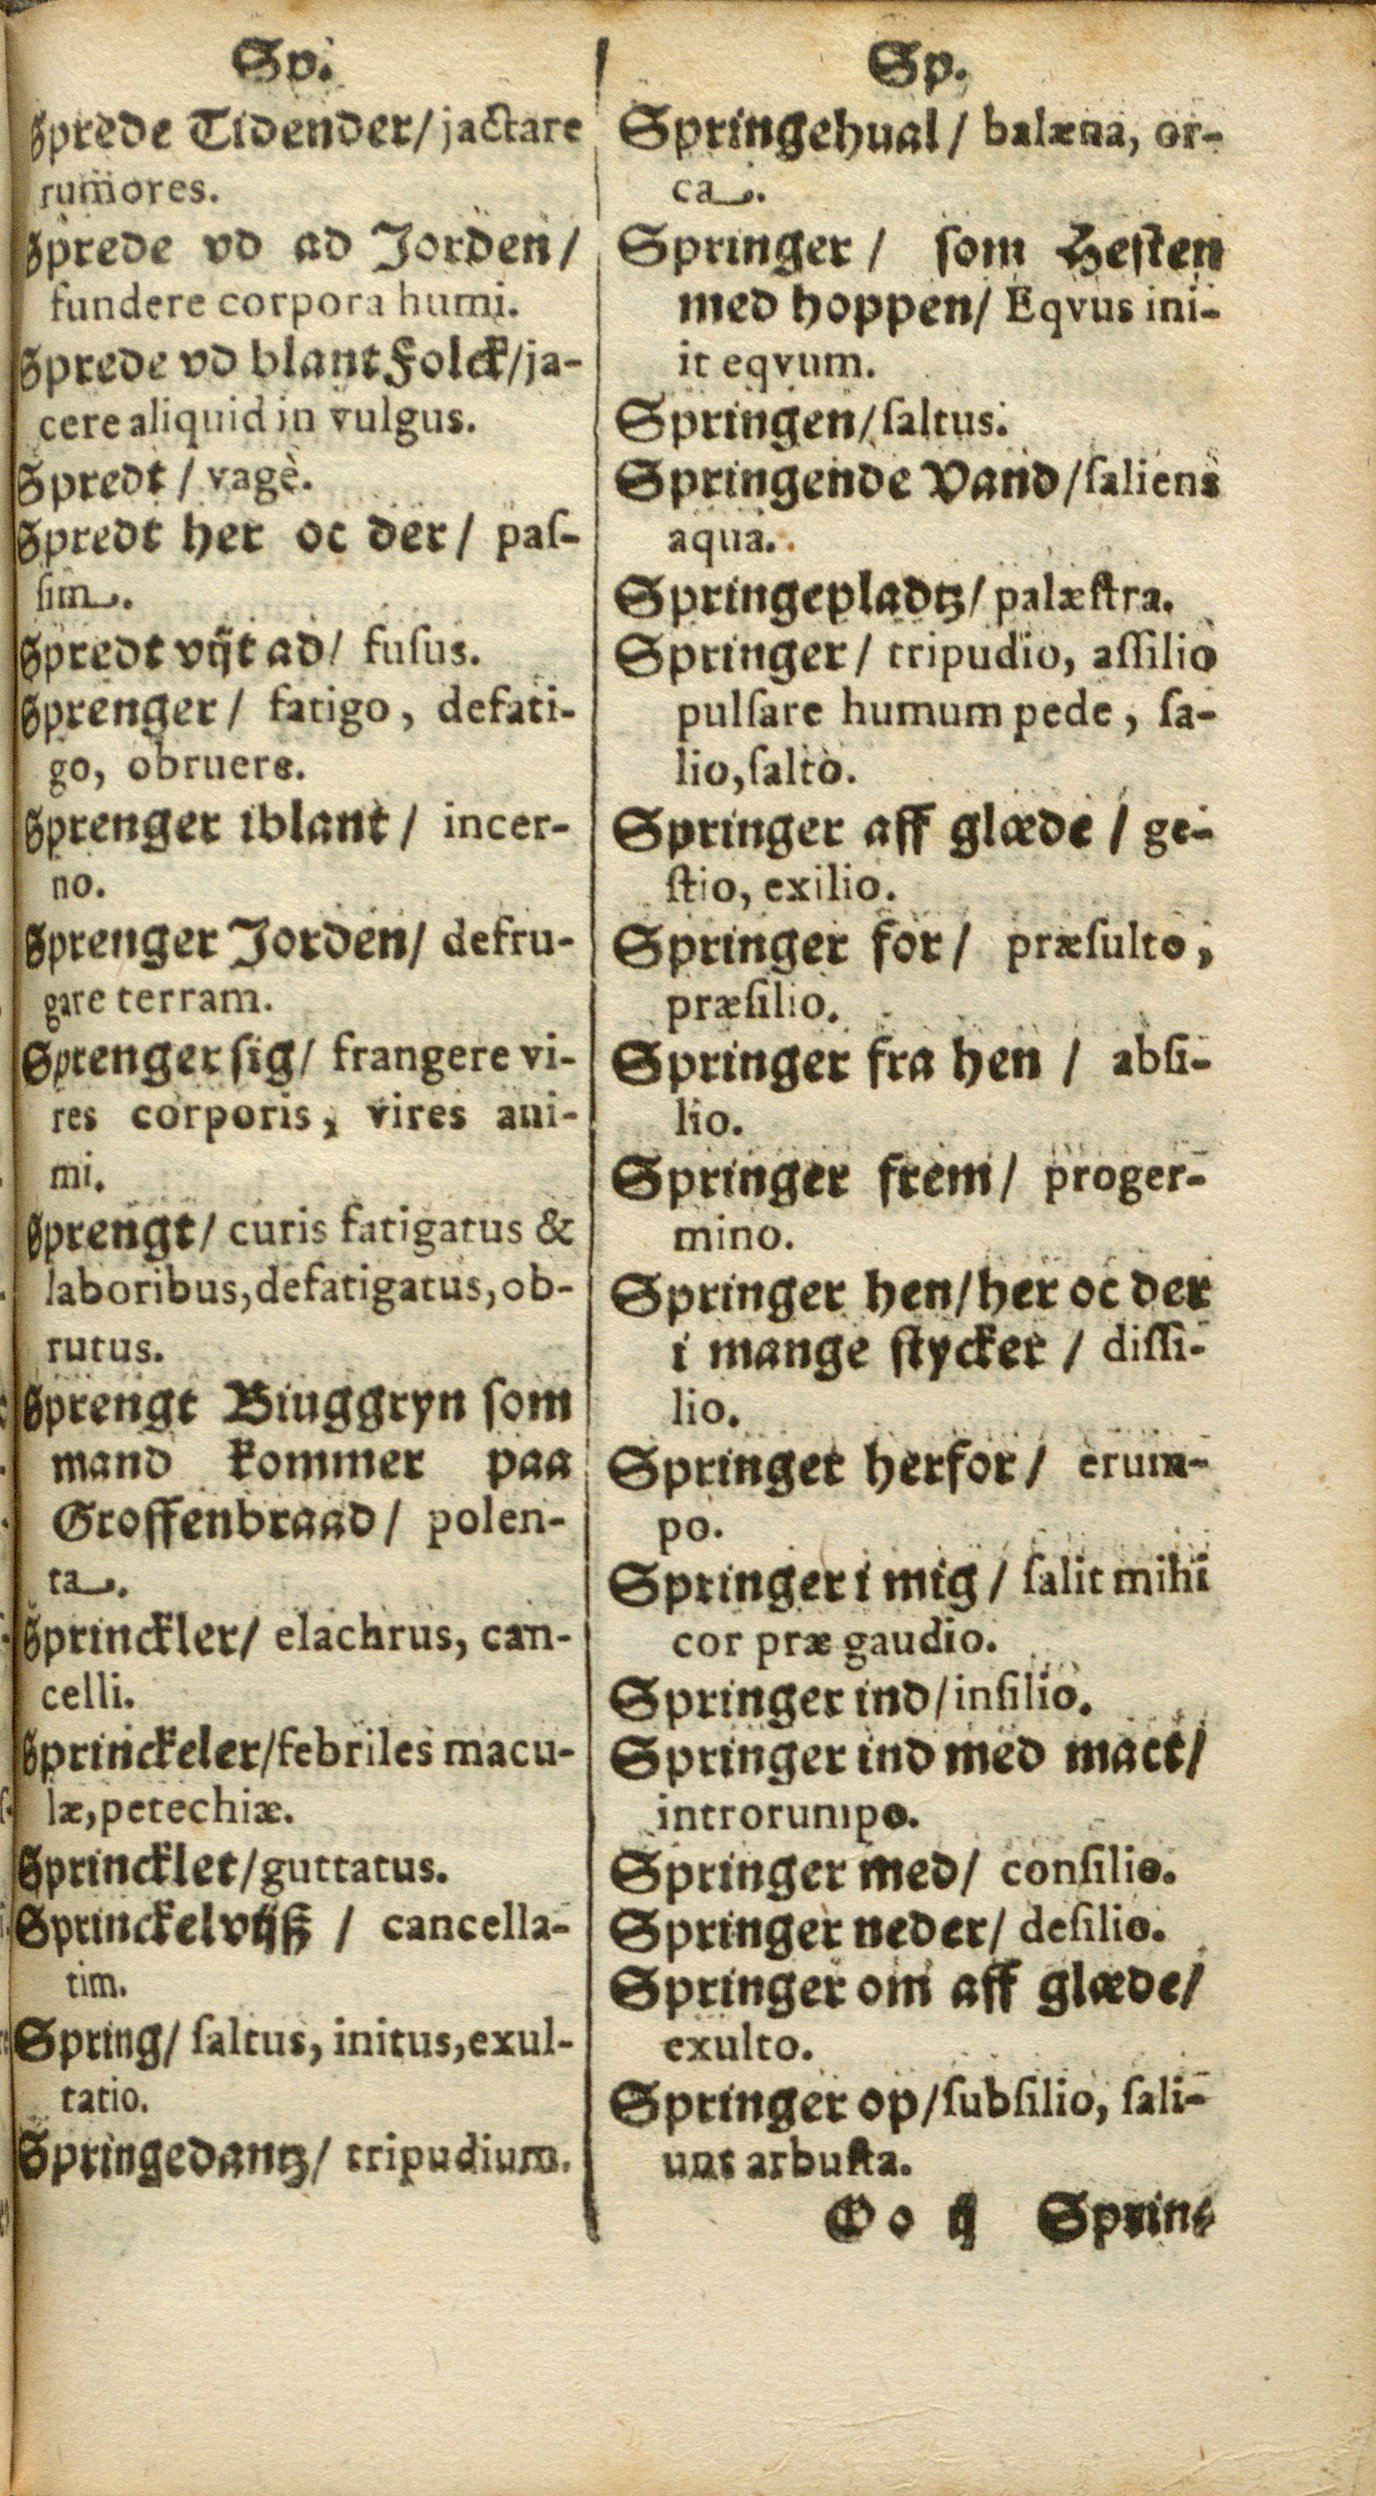 Sp.
Sprede Tidender/ jactare
rumores.
Sprede vd ad Jorden/
fundere corpora humi.
Sprede vd blant Folck/ ja-
cere aliquid in vulgus.
Spredt / vagè.
Spredt her oc der/ paſ-
ſim.
Spredt vijt ad/ fuſus.
Sprenger/ fatigo, defati-
go, obruere.
Sprenger iblant/ incer-
no.
Sprenger Jorden/ defru-
gare terram.
Sprenger ſig/ frangere vi-
res corporis, vires ani-
mi.
Sprengt/ curis fatigatus &
laboribus, defatigatus, ob-
rutus.
Sprengt Biuggryn ſom
mand kommer paa
Groffenbraad/ polen-
ta.
Sprinckler/ elachrus, can-
celli.
Sprinckeler/ febriles macu-
læ, petechiæ.
Sprincklet/ guttatus.
Sprinckelvijß / cancella-
tim.
Spring/ ſaltus, initus, exul-
tatio.
Springedantz/ tripudium.
Sp.
Springehual/ balæna, or-
ca.
Springer/ ſom Heſten
med hoppen/ Eqvus ini-
it eqvum.
Springen/ ſaltus.
Springende Vand/ ſaliens
aqua.
Springepladtz/ palæſtra.
Springer/ tripudio, aſſilio
pulſare humum pede, ſa-
lio, ſalto.
Springer aff glæde / ge-
ſtio, exilio.
Springer for/ præſulto,
præſilio.
Springer fra hen / abſi-
lio.
Springer frem/ proger-
mino.
Springer hen/ her oc der
i mange ſtycker / diſſi-
lio.
Springer herfor/ erum-
po.
Springer i mig / ſalit mihi
cor præ gaudio.
Springer ind/ inſilio.
Springer ind med mact/
introrumpo.
Springer med/ conſilio.
Springer neder/ deſilio.
Springer om aff glæde/
exulto.
Springer op/ ſubſilio, ſali-
unt arbuſta.
Oo ij Sprin-